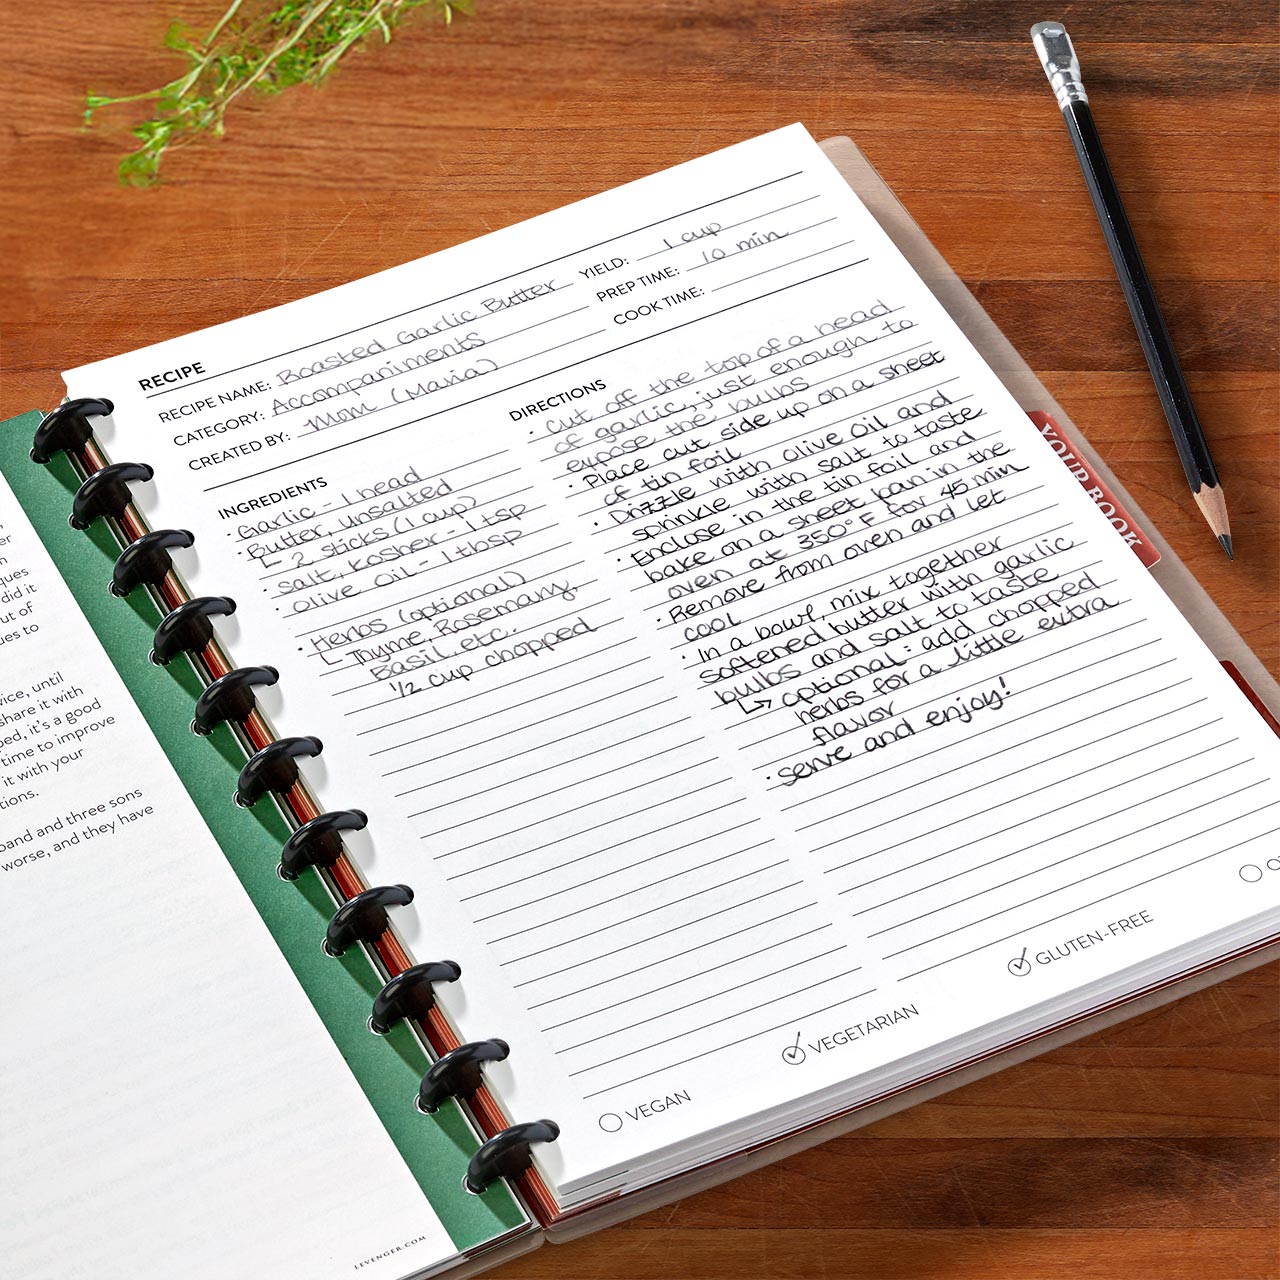 er
n
ques
did it
out of
ues to
vice, until
share it with
ped, it's a good
time to improve
it with your
tions.
band and three sons
worse, and they have
LEVENGER.COM
RECIPE
RECIPE NAME: Roasted Garlic Butter
CATEGORY: Accompaniments
CREATED BY: Mom (Maria)
YIELD: 1 cup
PREP TIME: 10 min
COOK TIME:
INGREDIENTS
· Garlic - 1 head
· Butter, unsalted
↳ 2 sticks (1 cup)
· salt, kosher - 1 tsp
· olive oil - 1 tbsp
· Herbs (optional)
↳ Thyme, Rosemary,
Basil, etc.
1/2 cup chopped
DIRECTIONS
· cut off the top of a head
of garlic, just enough to
expose the bulbs
· Place cut side up on a sheet
of tin foil
· Drizzle with olive oil and
sprinkle with salt to taste
· Enclose in the tin foil and
bake on a sheet pan in the
oven at 350°F for 45 min
· Remove from oven and let
cool
· In a bowl, mix together
softened butter with garlic
bulbs and salt to taste
↳ optional: add chopped
herbs for a little extra
flavor
· serve and enjoy!
VEGAN
VEGETARIAN
GLUTEN-FREE
YOUR BOOK